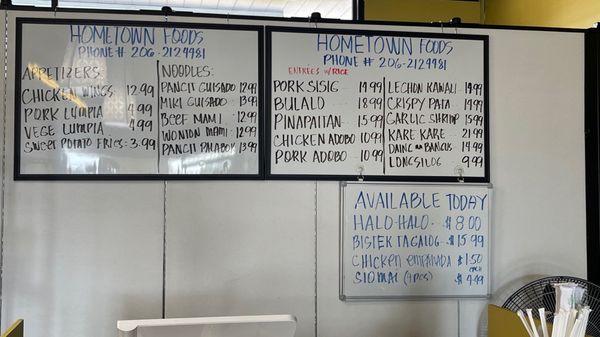 HOMETOWN FOODS
PHONE # 206-2124981
APPETIZERS:
CHICKEN WINGS 12.99
PORK LUMPIA 4.99
VEGE LUMPIA 4.99
SWEET POTATO FRIES: 3.99
NOODLES:
PANCIT GUISADO 12.99
MIKI GUISADO 13.99
BEEF MAMI 12.99
WONTON MAMI: 12.99
PANCIT PALABOK 13.99
HOMETOWN FOODS
PHONE # 206-2124981
ENTRÉES W/RICE
PORK SISIG 14.99
BULALO 18.99
PINAPAITAN 15.99
CHICKEN ADOBO 10.99
PORK ADOBO 10.99
LECHON KAWALI 14.99
CRISPY PATA 19.99
GARLIC SHRIMP 15.99
KARE KARE 21.99
DAING na BANGUS 14.99
LONGSILOG 9.99
AVAILABLE TODAY
HALO-HALO - $8.00
BISTEK TAGALOG - $15.99
CHICKEN EMPANADA $1.50 EACH
SIOMAI (4PCS) $4.99